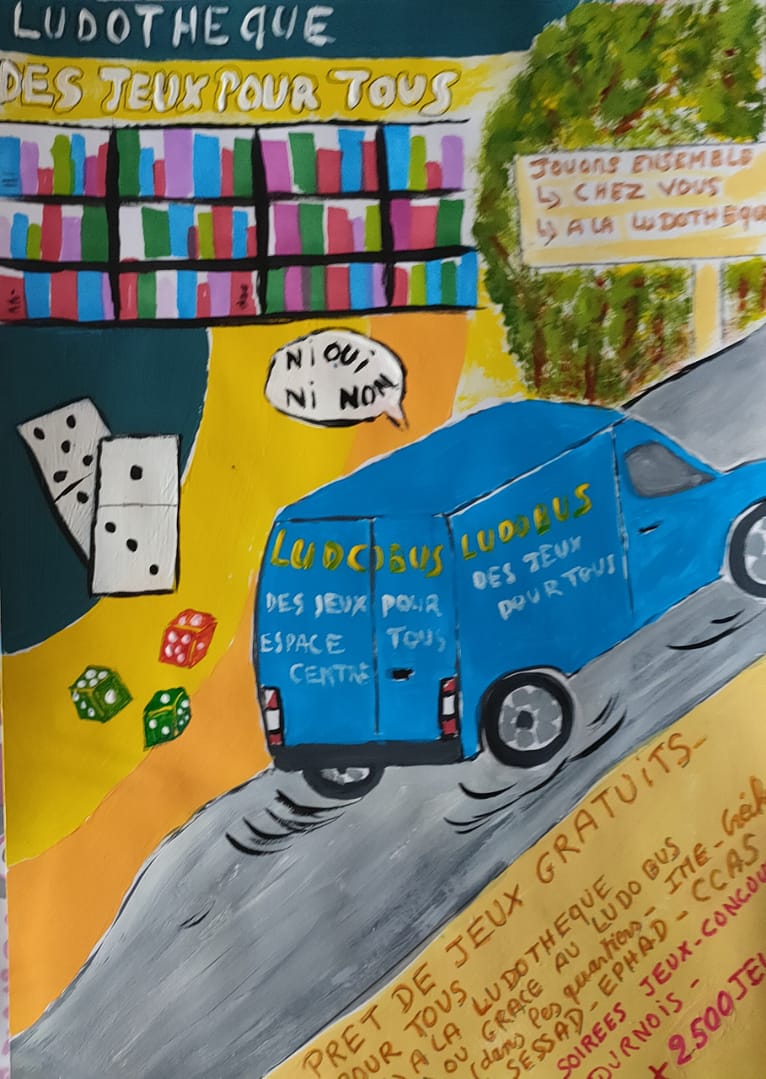 LUDOTHEQUE
DES JEUX POUR TOUS
JOUONS ENSEMBLE
↳ CHEZ VOUS
↳ A LA LUDOTHEQU
Ni OUi
Ni NON
LUDOBUS
DES JEUX POUR
ESPACE TOUS
CENTRE
LUDOBUS
DES JEUX
POUR TOUS
PRET DE JEUX GRATUITS-
POUR TOUS
A LA LUDOTHEQUE
OU GRACE AU LUDO BUS
(dans les quartiers - IME -
SESSAD - EPHAD - CCAS
SOIREES JEUX - CONCOU
OURNOIS -
+ 2.500 JEU